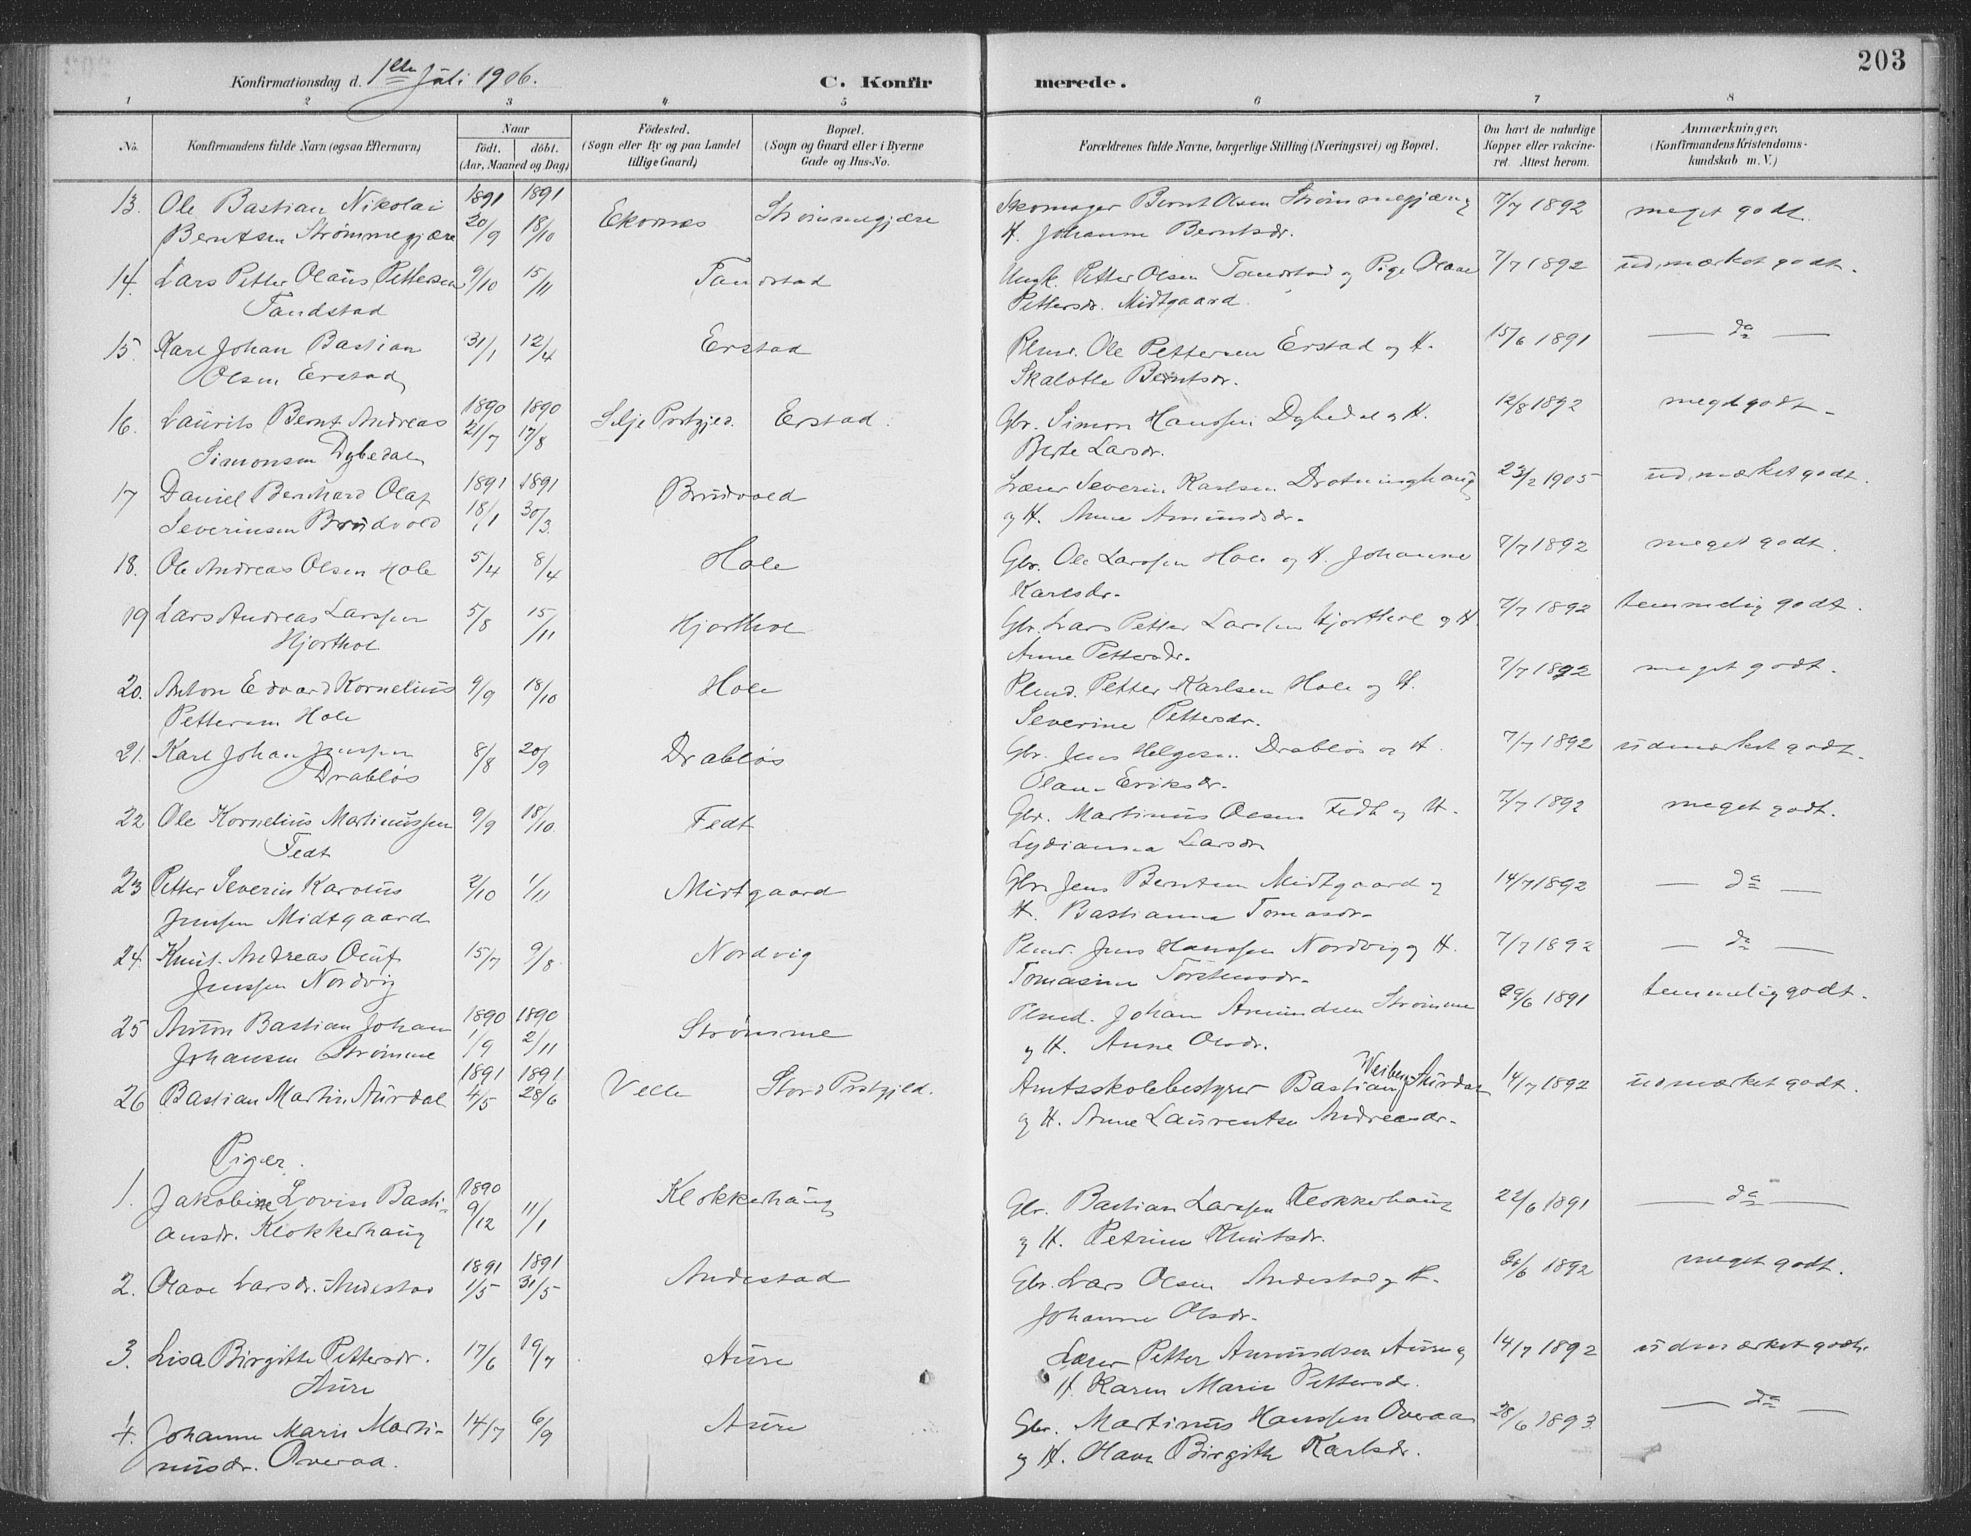 203
Konfirmationsdag d. 1ste Juli 1906.
C. Konfirmerede.
1 2 3 4 5 6 7 8
No. Konfirmandens fulde Navn (ogsaa Efternavn) Naar födt. döbt. (Aar, Maaned og Dag) Födested. (Sogn eller By og paa Landet tillige Gaard) Bopæl. (Sogn og Gaard eller i Byerne Gade og Hus-No. Forældrenes fulde Navne, borgerlige Stilling (Næringsvei) og Bopæl. Om havt de naturlige Kopper eller vakcineret. Attest herom. Anmærkninger. (Konfirmandens Kristendomskundskab m. V.)
13. Ole Bastian Nikolai 1891 1891 Skomager Bernt Olsen Strømmegjære og 7/7 1892 meget godt.
Berntsen Strømmegjære 20/9 18/10 Ekornes Strømmegjære H. Johanne Berntsdr.
14. Lars Petter Olaus Pettersen 9/10 15/11 Tandstad Ungk. Petter Olsen Tandstad og Pige Olave 7/7 1892 udmærket godt.
Tandstad Pettersdr. Midtgaard.
15. Karl Johan Bastian 31/1 12/4 Erstad Plmd. Ole Pettersen Erstad og H. 15/6 1891 — do —
Olsen Erstad Skalotte Berntsdr.
16. Laurits Bernt Andreas 1890 1890 Gbr. Simon Hanssen Dybedal og H. 12/8 1892 meget godt.
Simonsen Dybedal 21/7 17/8 Silje Prstgjeld. Erstad. Berte Larsdr.
17 Daniel Bernhard Olaf 1891 1891 Brudvold Lærer Severin Karlsen Drotninghaug 23/2 1905 udmærket godt.
Severinsen Brudvold 18/1 30/3 og H. Anne Amundsdr.
18. Ole Andreas Olsen Hole 5/4 8/4 Hole Gbr. Ole Larssen Hole og H. Johanne 7/7 1892 meget godt.
Karlsdr.
19 Lars Andreas Larssen 5/8 15/11 Hjorthol Gbr. Lars Petter Larssen Hjorthol og H. 7/7 1892 temmelig godt.
Hjorthol Anne Pettersdr.
20. Anton Edvard Kornelius 9/9 18/10 Hole Plmd. Petter Karlsen Hole og H. 7/7 1892 meget godt.
Pettersen Hole Severine Pettersdr.
21. Karl Johan Jenssen 8/8 20/9 Drabløs Gbr. Jens Helgesen Drabløs og H. 7/7 1892 udmærket godt.
Drabløs Olave Eriksdr.
22 Ole Kornelius Martinussen 9/9 18/10 Fedt Gbr. Martinus Olsen Fedt og H. 7/7 1892 meget godt.
Fedt Lydianna Larsdr
23 Petter Severin Karolus 2/10 1/11 Midtgaard Gbr. Jens Berntsen Midtgaard og 14/7 1892 — do —
Jenssen Midtgaard H. Bastianna Tomasdr.
24. Knut Andreas Oluf 15/7 9/8 Nordvig Plmd. Jens Hanssen Nordvig og H. 7/7 1892 — do —
Jenssen Nordvig Tomasine Torstensdr.
25 Anton Bastian Johan 1890 1890 Strømme Plmd. Johan Amundsen Strømme 29/6 1891 temmelig godt.
Johansen Strømme 1/9 2/11 og H. Anne Olsdr.
26 Bastian Martin Aurdal 1891 1891 4/5 28/6 Velle Stord Prstgjeld. Amtsskolebestyrer Bastian Aurdal 14/7 1892 udmærket godt.
og H. Anne Laurentse Andreasdr.
Piger.
1. Jakobine Lovise Basti- 1890 9/12 11/1 Klokkerhaug Gbr. Bastian Larssen Klokkerhaug 22/6 1891 — do —
ansdr. Klokkerhaug og H. Petrine Knutsdr.
2. Olave Larsdr. Andestad 1891 1891 1/5 31/5 Andestad Gbr. Lars Olsen Andestad og H. 30/6 1892 meget godt.
Johanne Olsdr.
3. Lisa Birgitte Pettersdr. 17/6 19/7 Aure Lærer Petter Amundsen Aure og 14/7 1892 udmærket godt.
Aure H. Karen Marie Pettersdr.
4. Johanne Marie Marti- 14/7 6/9 Aure Gbr. Martinus Hanssen Overaa 28/6 1893. — do —
nusdr. Overaa. og H. Olave Birgitte Karlsdr.